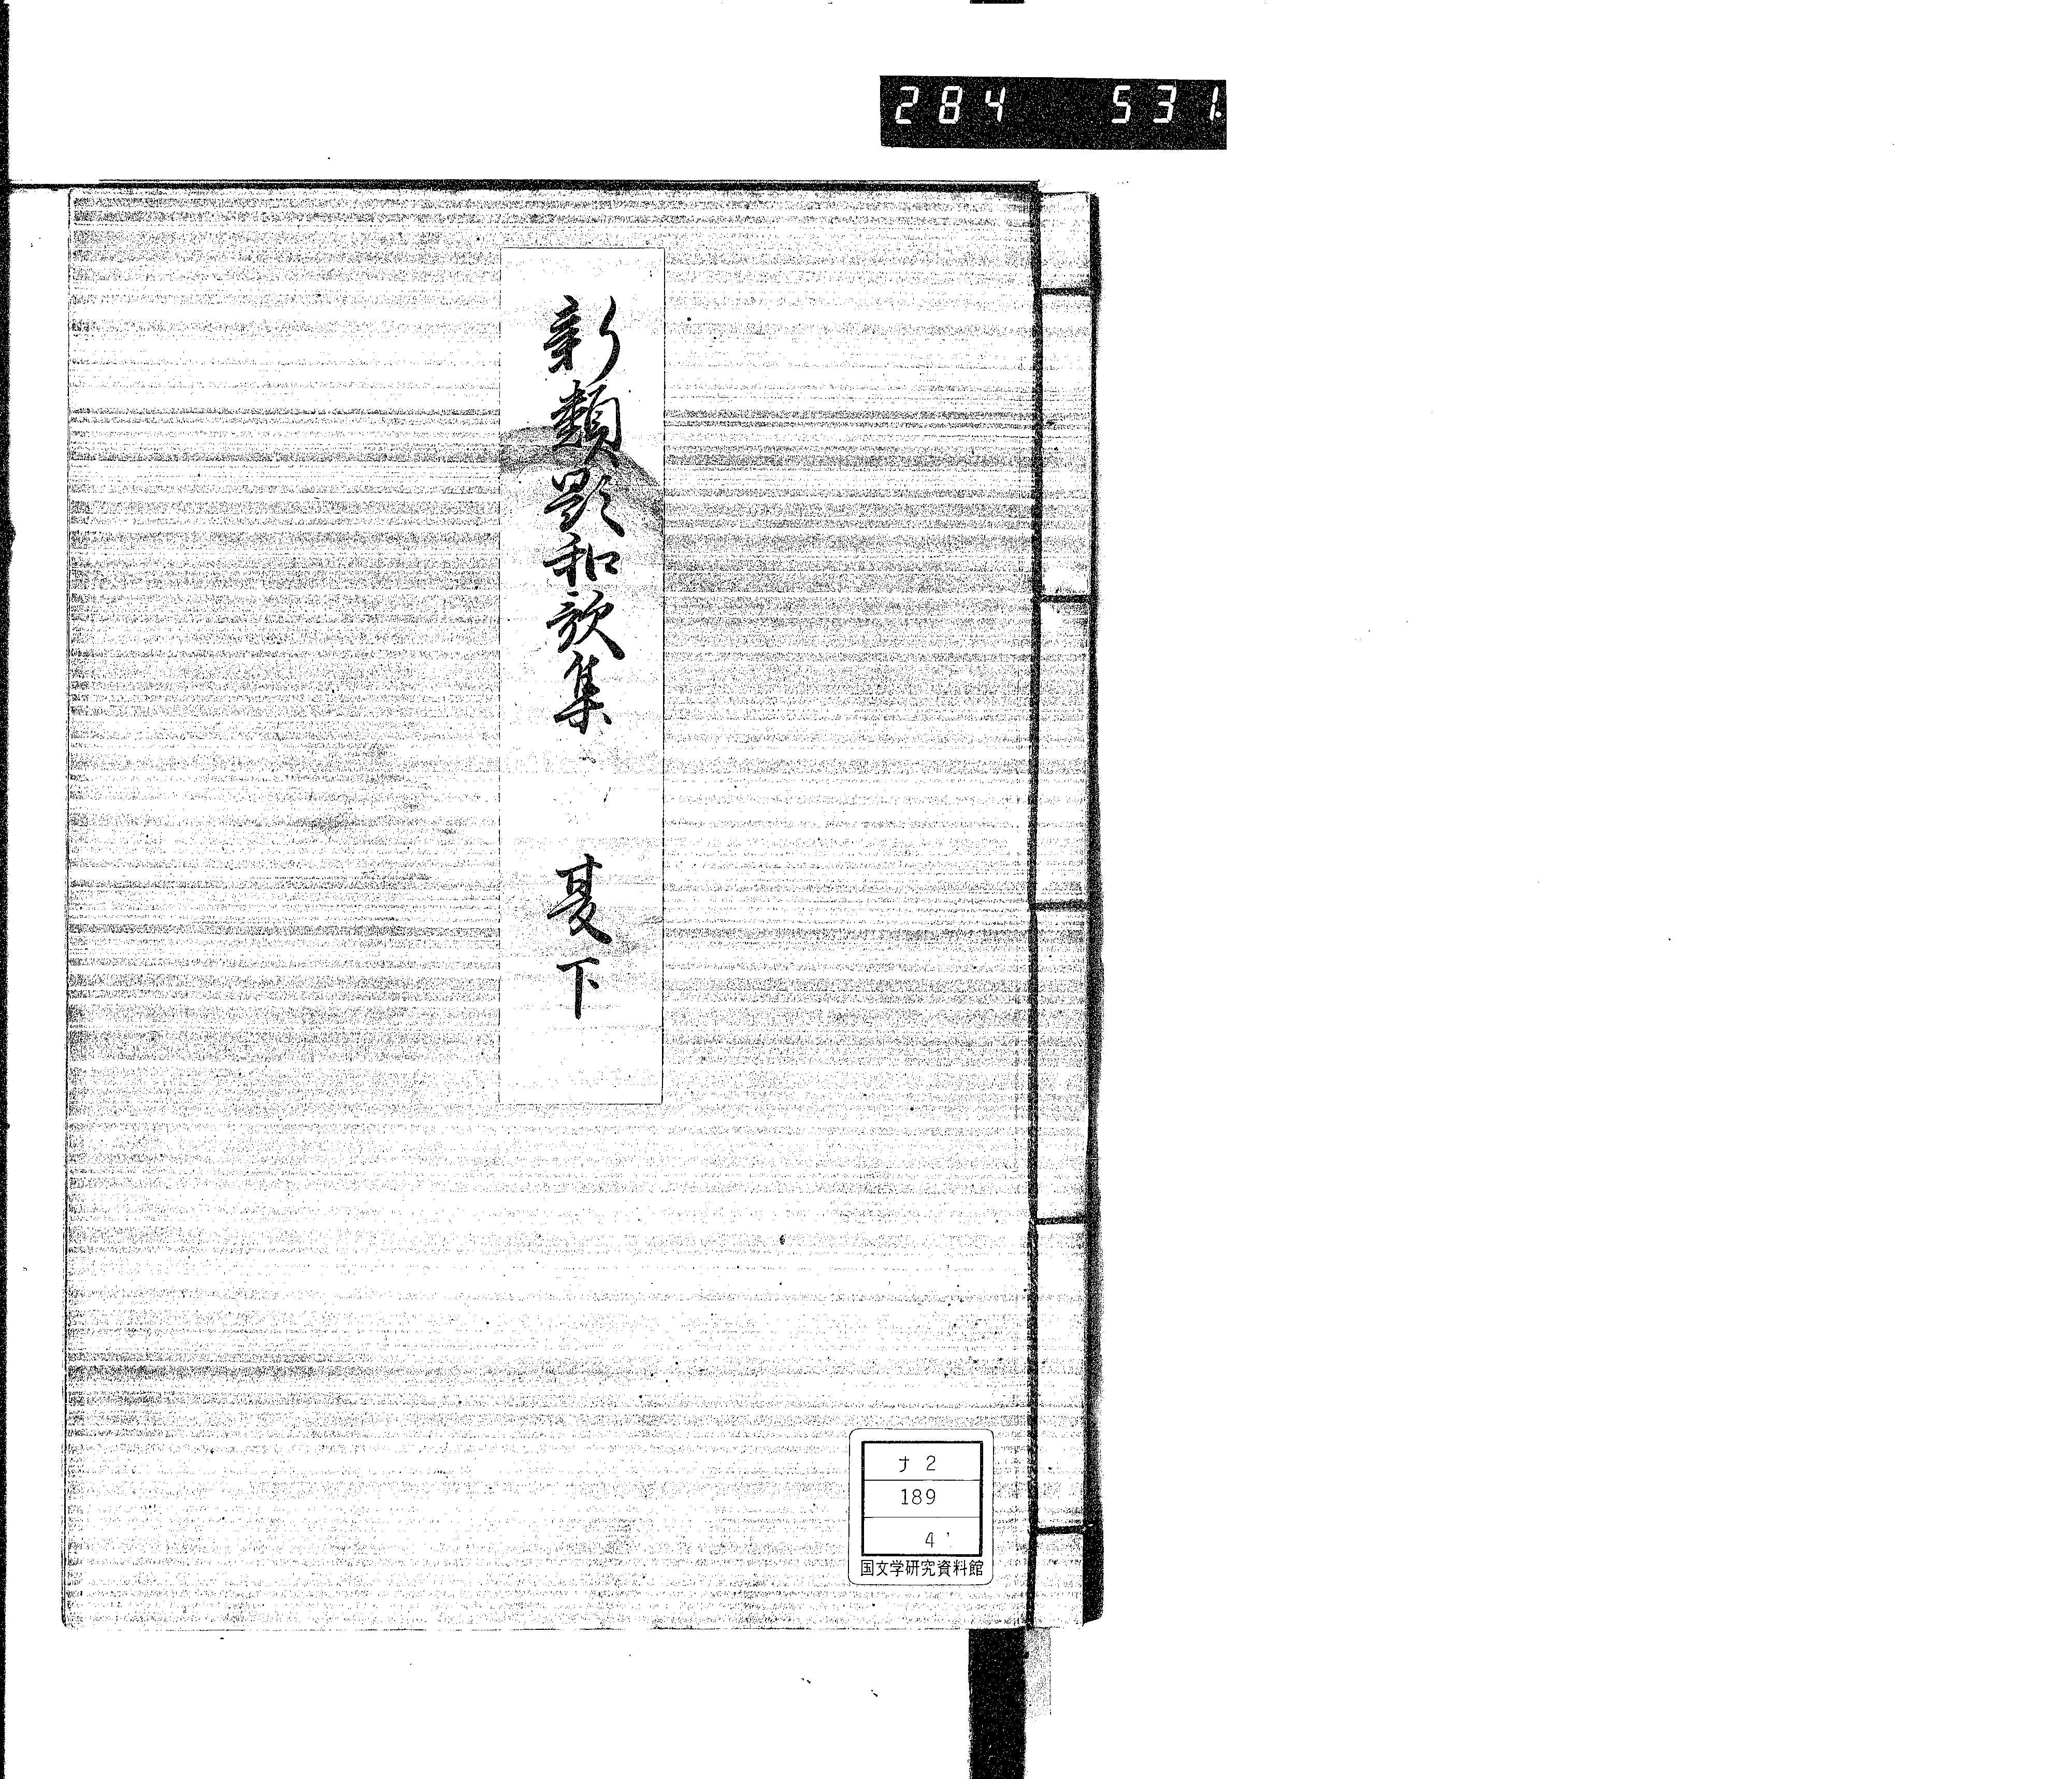 284 531
新類題和歌集 夏下
ナ 2
189
4
国文学研究資料館